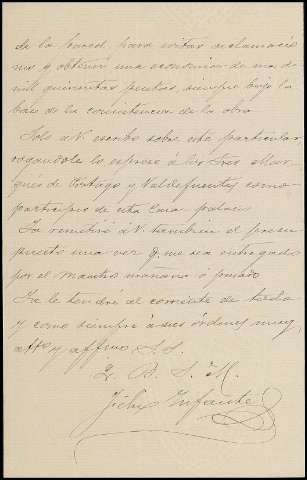 de la pared, para evitar reclamacio
nes y obtener una economia de mas de
mil quinientas pesetas, siempre bajo la
base de la consistencia de la obra.
Solo a V. escribo sobre este particular
rogandole lo esprese á los Sres Mar
qués de Tortago y Valdefuentes como
participes de esta Casa palacio.
Ya remitiré á V. tambien el presu
puesto una vez q. me sea entregado
por el maestro mañana ó pasado.
Ya le tendré al corriente de todo
y como siempre á sus órdenes muy
atto y affmo S. S.
Q. B. S. M.
Infante